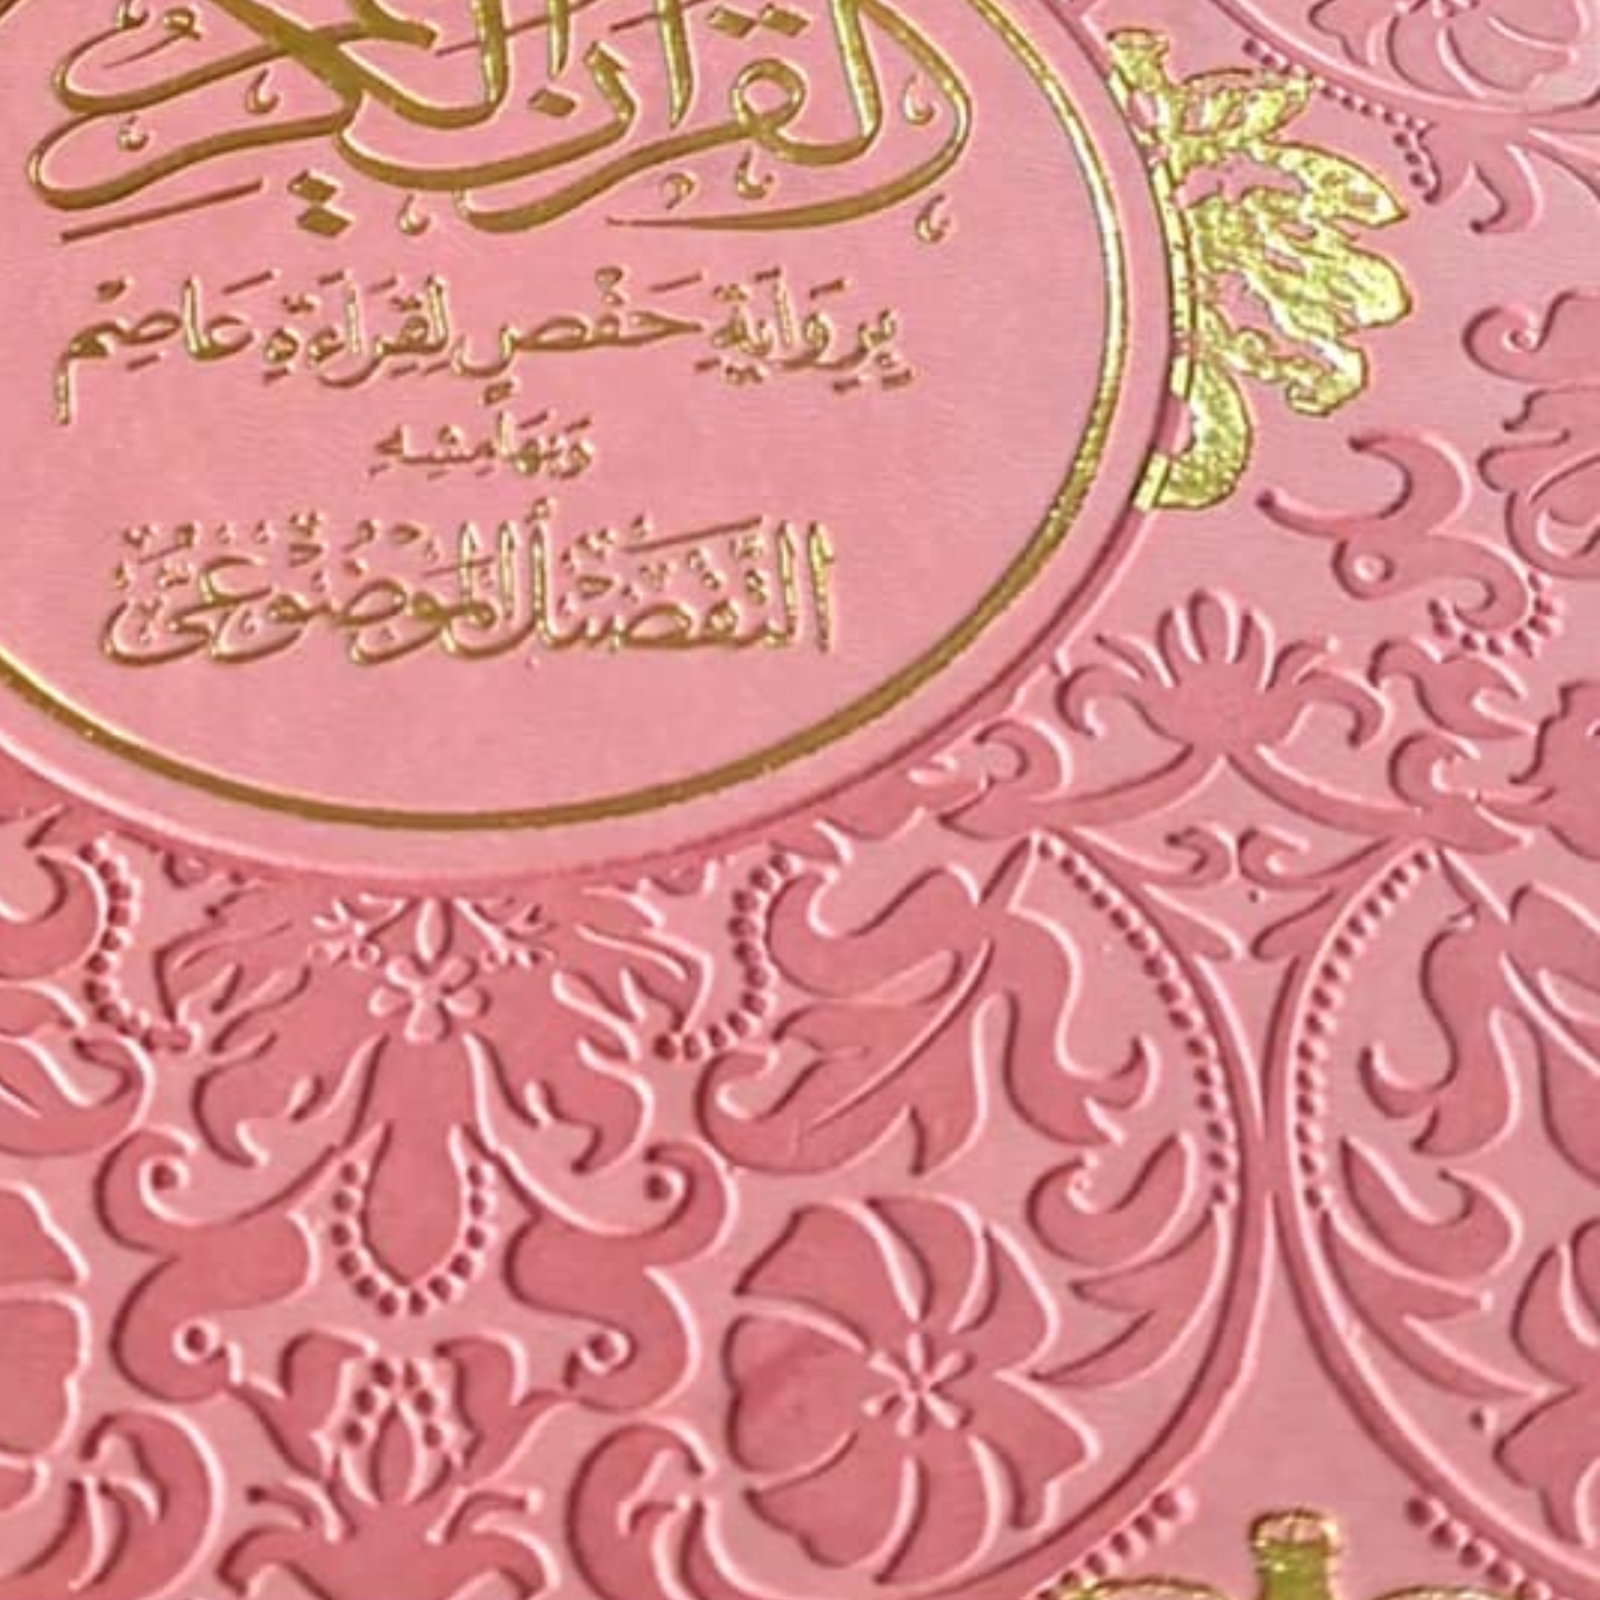 القرآن الكريم
بِرِوَايَةِ حَفْصٍ لِقِرَاءَةِ عَاصِمٍ
وَبِهَامِشِهِ
التَّفْصِيلُ الْمَوْضُوعِيُّ